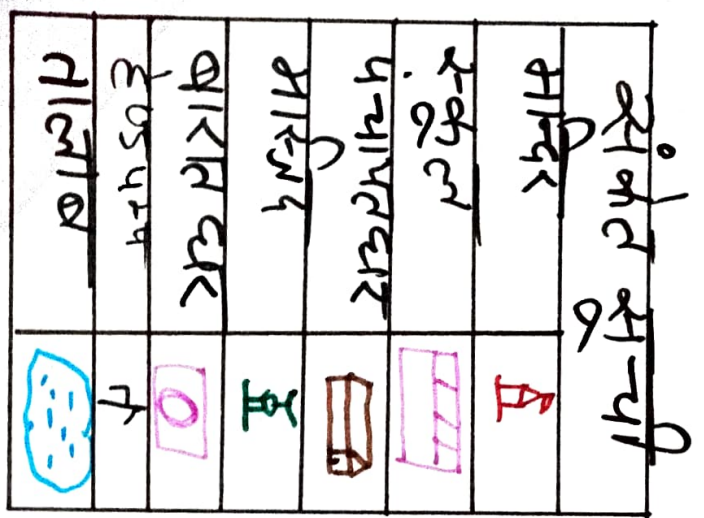 संकेत सूची
मान्दिर
स्कूल
पंचायतघर
मास्जिद
बारातघर
हैण्डपम्प
तालाब